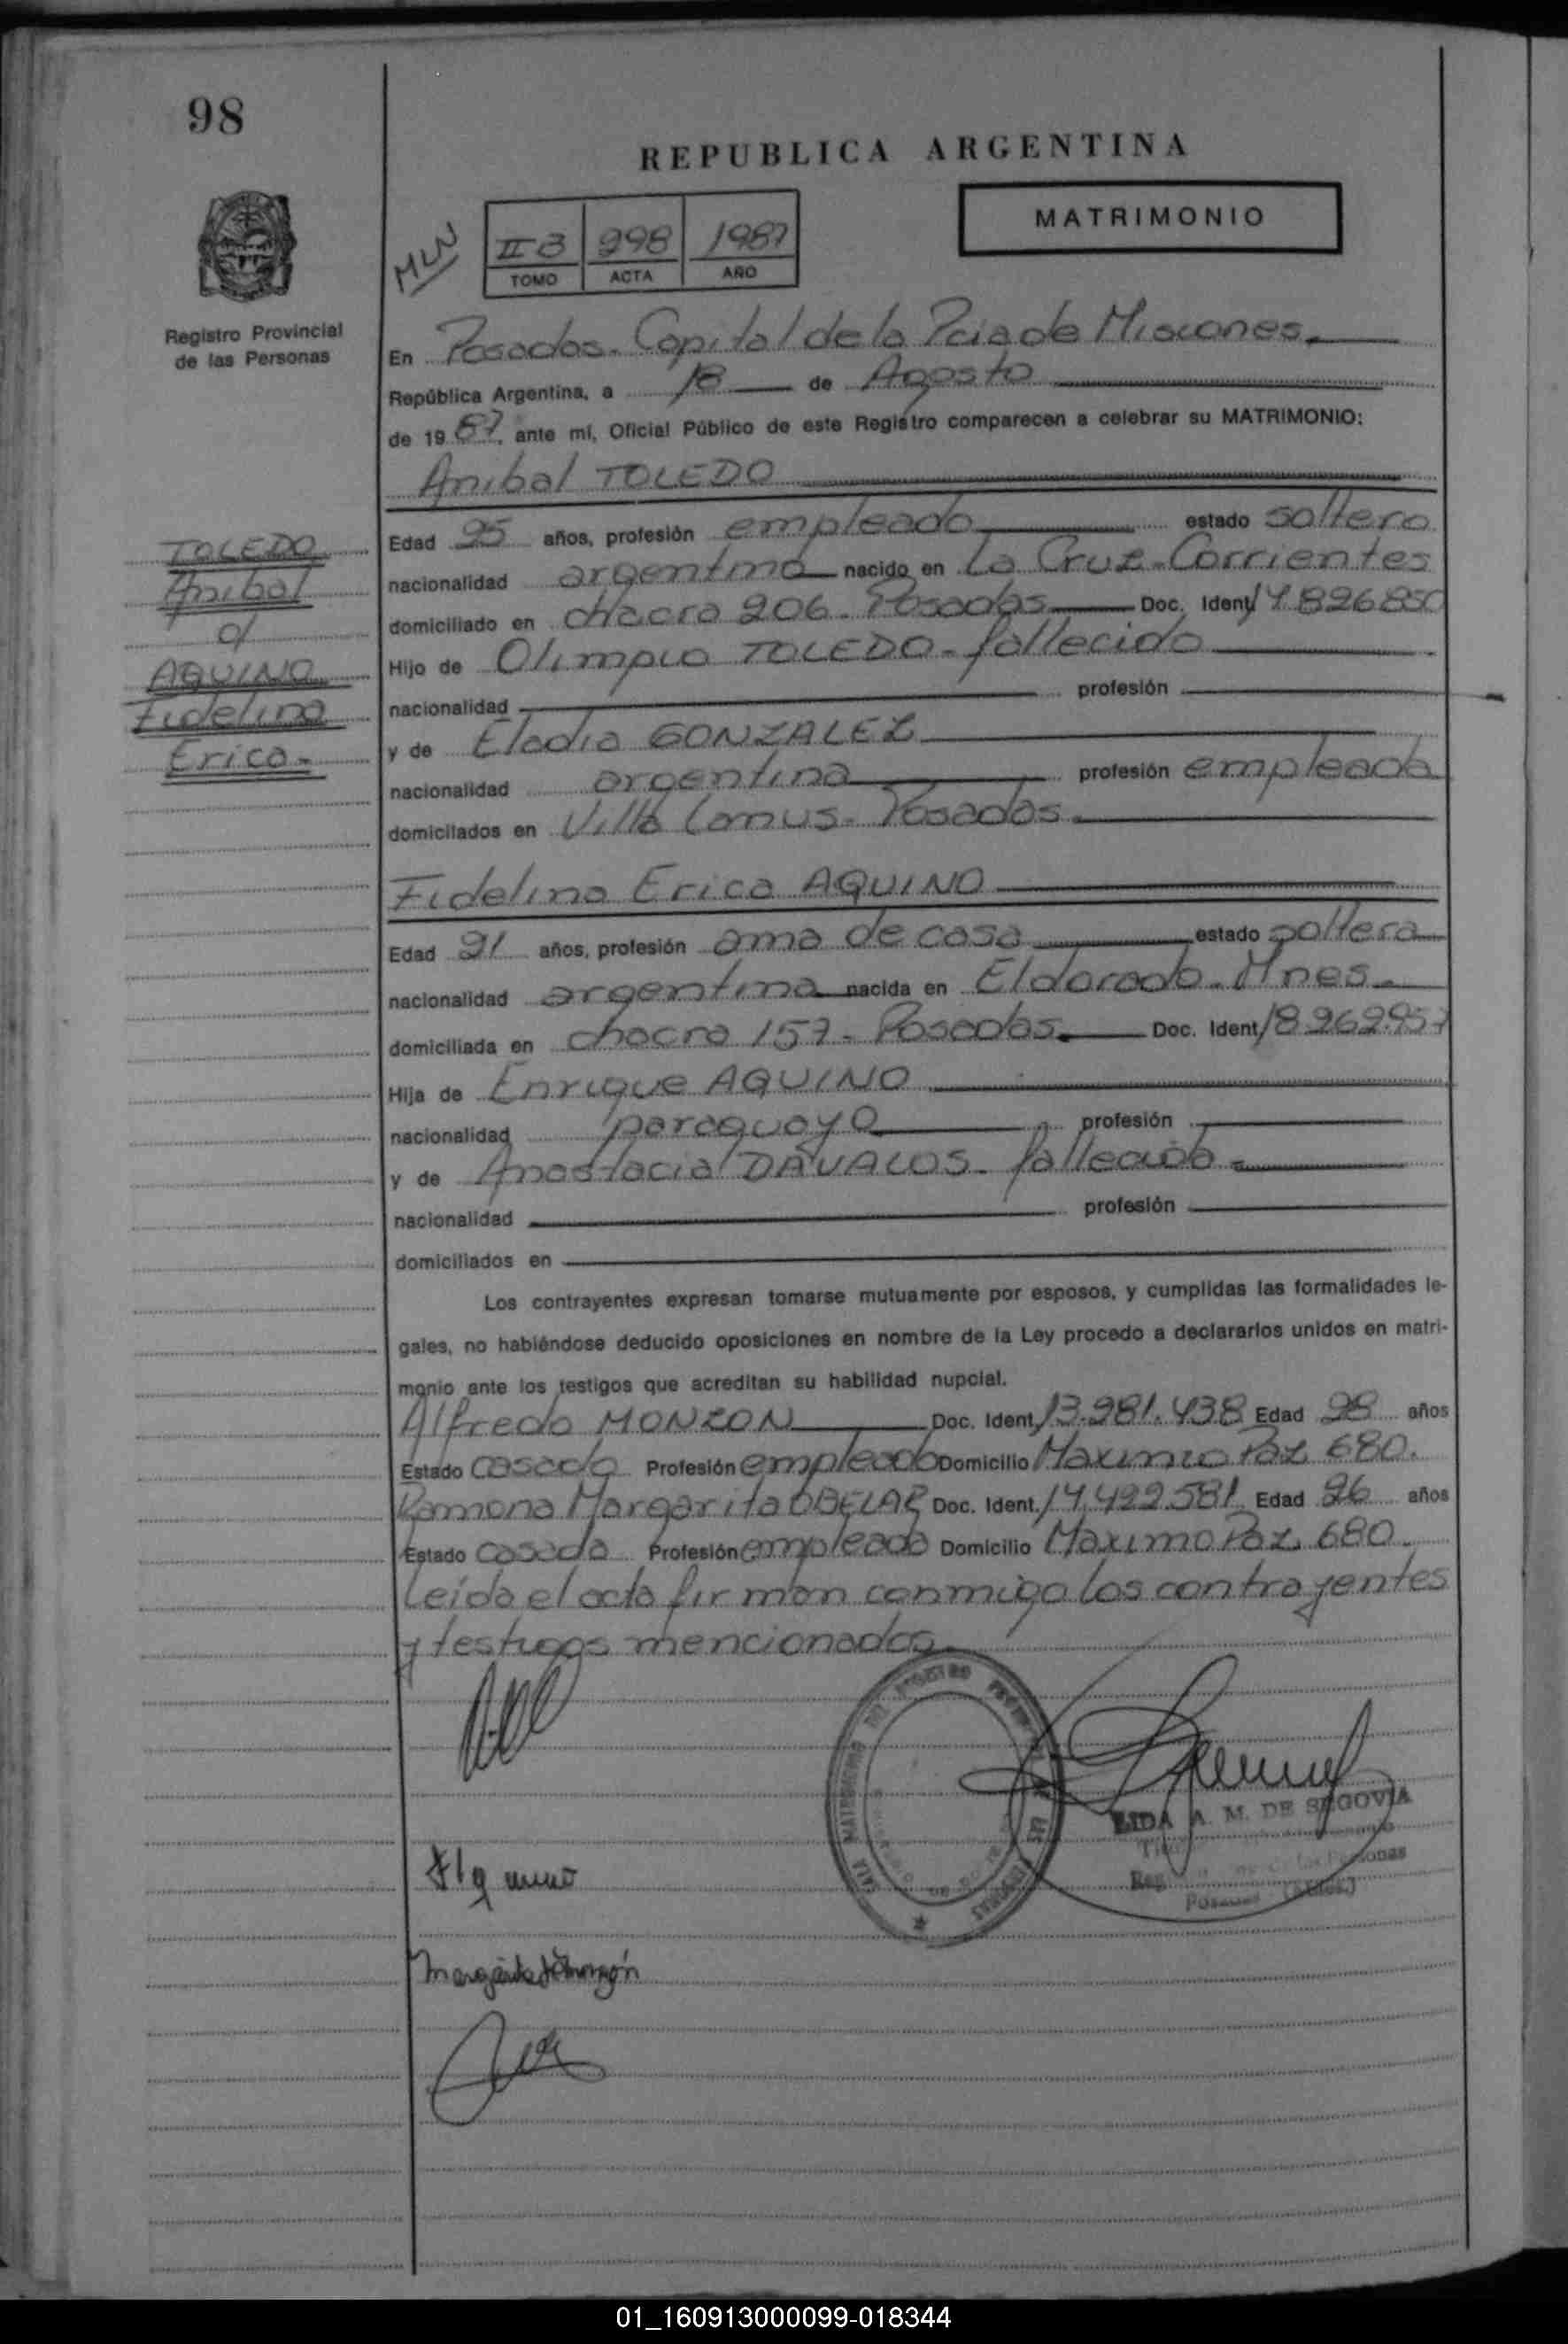 98
REPUBLICA ARGENTINA
MATRIMONIO
MLN
II B 298 1987
TOMO ACTA AÑO
Registro Provincial
de las Personas
En Posadas. Capital de la Pcia de Misiones.
República Argentina, a 18 de Agosto
de 19 87, ante mí, Oficial Público de este Registro comparecen a celebrar su MATRIMONIO:
Anibal TOLEDO
TOLEDO
Anibal
c/
AQUINO
Fidelina
Erica.
Edad 25 años, profesión empleado estado soltero
nacionalidad argentina nacido en La Cruz-Corrientes
domiciliado en chacra 206. Posadas Doc. Ident. 14.826.850
Hijo de Olimpio TOLEDO-fallecido
nacionalidad profesión
y de Eladia GONZALEZ
nacionalidad argentina profesión empleada
domiciliados en Villa Lanus. Posadas.
Fidelina Erica AQUINO
Edad 21 años, profesión ama de casa estado soltera
nacionalidad argentina nacida en Eldorado. Mnes.
domiciliada en chacra 157. Posadas. Doc. Ident. 18.262.957
Hija de Enrique AQUINO
nacionalidad paraguayo profesión
y de Anastacia DAVALOS. fallecida
nacionalidad profesión
domiciliados en
Los contrayentes expresan tomarse mutuamente por esposos, y cumplidas las formalidades le-
gales, no habiéndose deducido oposiciones en nombre de la Ley procedo a declararlos unidos en matri-
monio ante los testigos que acreditan su habilidad nupcial.
Alfredo MONZON Doc. Ident. 13.281.438 Edad 28 años
Estado casado Profesión empleado Domicilio Maximo Paz 680.
Ramona Margarita OBELAR Doc. Ident. 14.422.581 Edad 26 años
Estado casada Profesión empleada Domicilio Maximo Paz 680.
Leída el acta firman conmigo los contrayentes
y testigos mencionados.
LIDA A. M. DE SEGOVIA
Posadas (Mnes.)
01_160913000099-018344